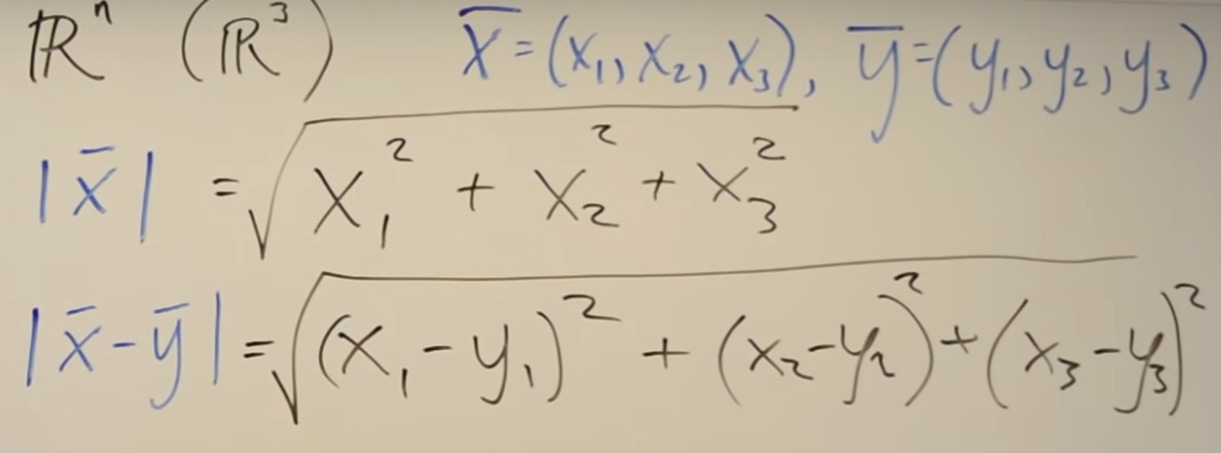 ℝⁿ (ℝ³) x̄=(x₁, x₂, x₃), ȳ=(y₁, y₂, y₃)
|x̄| = √(x₁² + x₂² + x₃²)
|x̄-ȳ| = √((x₁-y₁)² + (x₂-y₂)² + (x₃-y₃)²)